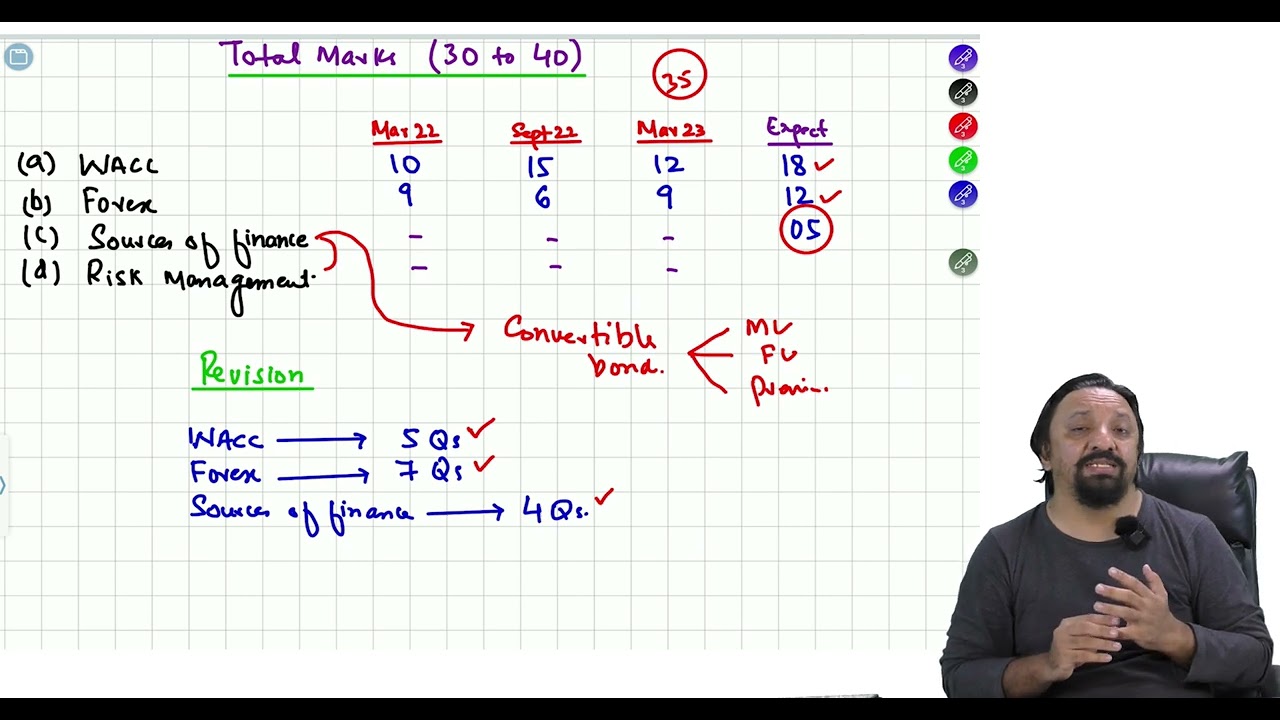 Total Marks (30 to 40)
35
Mar 22 Sept 22 Mar 23 Expect
(a) WACC 10 15 12 18 ✓
(b) Forex 9 6 9 12 ✓
(c) Sources of finance - - - 05
(d) Risk Management. - - -
Convertible bond.
MV
FV
Premi--.
Revision
WACC → 5 Qs ✓
Forex → 7 Qs ✓
Sources of finance → 4 Qs. ✓